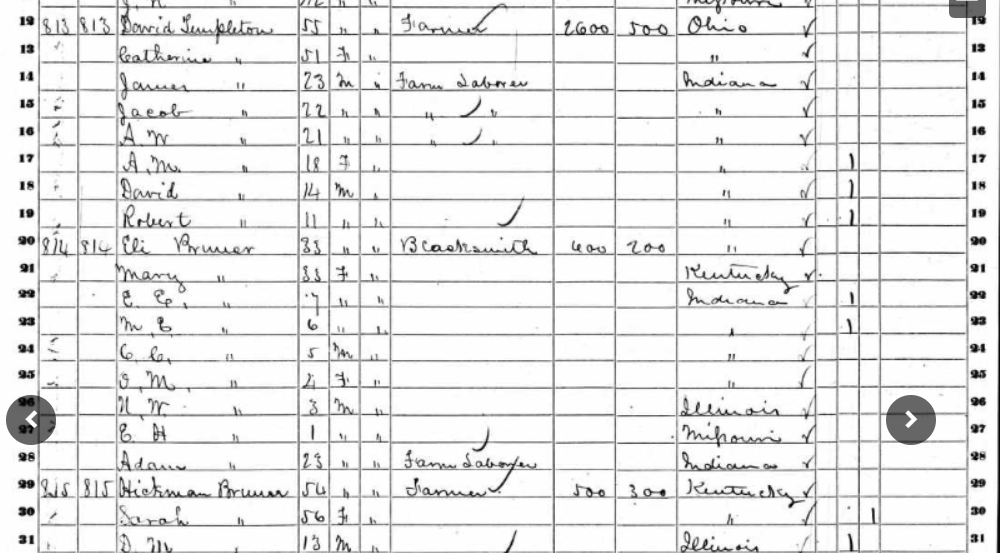 12 813 813 David Templeton 55 " " Farmer 2600 500 Ohio 12
13 Catherine " 51 F " " 13
14 James " 23 M " Farm Laborer Indiana 14
15 Jacob " 22 " " " " " 15
16 A. W " 21 " " " " " 16
17 A. M. " 18 F " " 1 17
18 David " 14 M " " 1 18
19 Robert " 11 " " " 1 19
20 814 814 Eli Bruner 33 " " Blacksmith 400 200 " 20
21 Mary " 33 F " Kentucky 21
22 E. E. " 7 " " Indiana 1 22
23 M. E " 6 " " " 1 23
24 C. C. " 5 M " " 24
25 M. " 4 F " " 25
26 N. W. " 3 M " Illinois 26
27 E H " 1 " " Missouri 27
28 Adam " 23 " " Farm Laborer Indiana 28
29 815 815 Hickman Bruner 54 " " Farmer 500 300 Kentucky 29
30 Sarah " 56 F " " 1 30
31 D. M " 13 M " Illinois 1 31